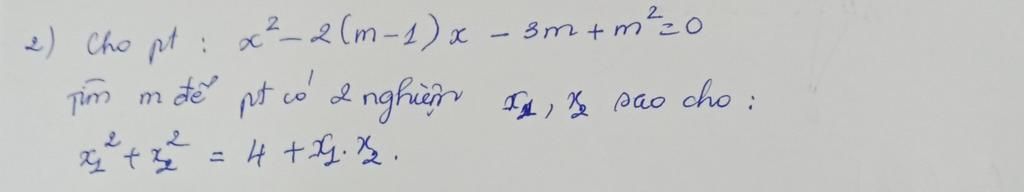 2) Cho pt : x² - 2(m-1)x - 3m + m² = 0
Tìm m để pt có 2 nghiệm x₁, x₂ sao cho :
x₁² + x₂² = 4 + x₁. x₂.